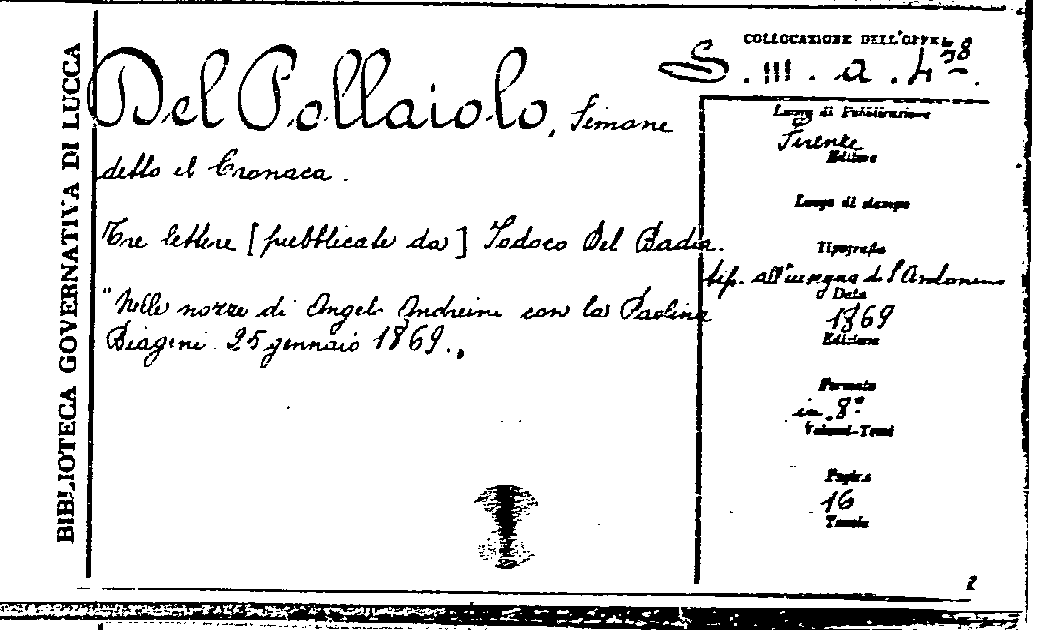 BIBLIOTECA GOVERNATIVA DI LUCCA
COLLOCAZIONE DELL'OPERA
S. III. a. 4
Del Pollaiolo, Simone
detto il Cronaca.
Tre lettere [pubblicate da] Iodoco Del Badia.
"Nelle nozze di Angelo Andreini con la Paolina
Biagini 25 gennaio 1869."
Luogo di Pubblicazione
Firenze
Editore
Luogo di stampa
Tipografia
tip. all'insegna di S. Antonino
Data
1869
Edizione
Formato
in 8°
Volumi-Tomi
Pagine
16
Tavole
2